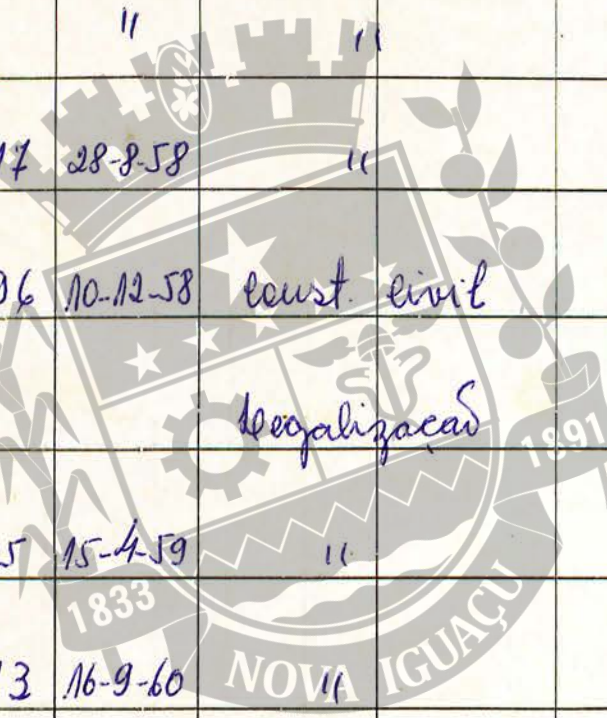 " "
17 28-8-58 "
96 10-12-58 Const. Civil
Legalização
5 15-4-59 "
3 16-9-60 "
1833
1891
NOVA IGUAÇU